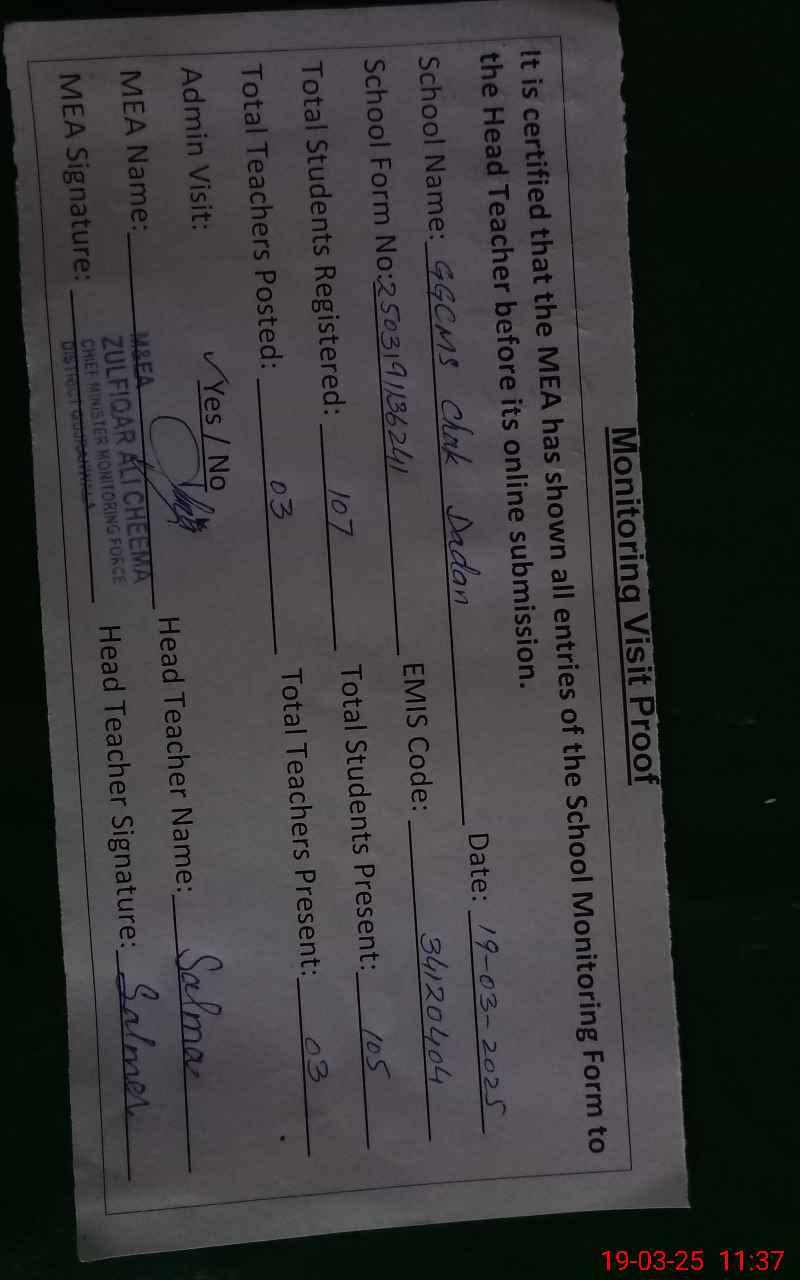 Monitoring Visit Proof
It is certified that the MEA has shown all entries of the School Monitoring Form to
the Head Teacher before its online submission.
School Name: GGCMS Chak Dadan Date: 19-03-2025
School Form No: 2503191136241 EMIS Code: 34120404
Total Students Registered: 107 Total Students Present: 105
Total Teachers Posted: 03 Total Teachers Present: 03
Admin Visit: ✓Yes / No
MEA Name: Head Teacher Name: Salma
MEA Signature: Head Teacher Signature: Salma
M&EA
ZULFIQAR ALI CHEEMA
CHIEF MINISTER MONITORING FORCE
DISTRICT GUJRANWALA
19-03-25 11:37